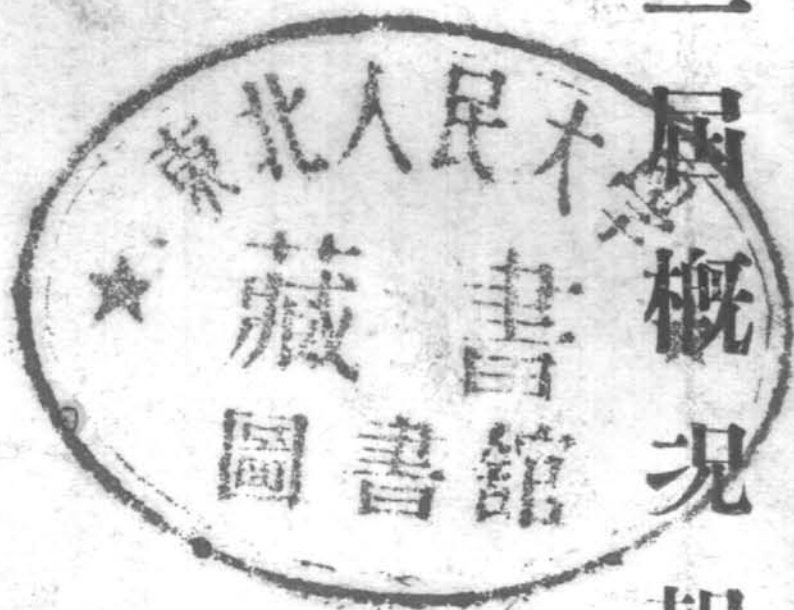 東北人民大學
藏書
圖書館
屆概況